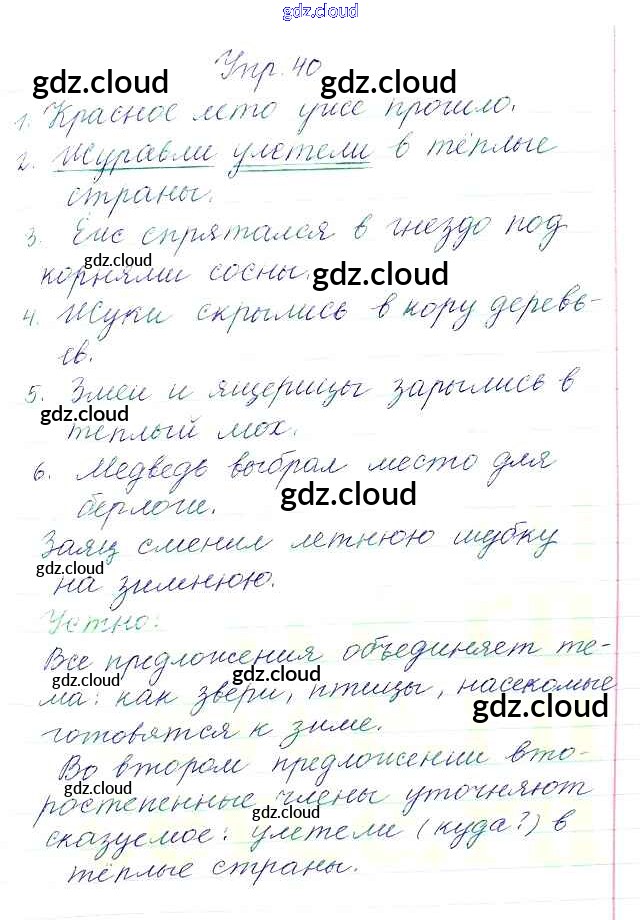 gdz.cloud
Упр. 40
gdz.cloud gdz.cloud
1. Красное лето уже прошло.
2. Журавли улетели в тёплые
страны.
3. Ёж спрятался в гнездо под
gdz.cloud
корнями сосны. gdz.cloud
4. Жуки скрылись в кору деревь-
ев.
5. Змеи и ящерицы зарылись в
gdz.cloud
теплый мох.
6. Медведь выбрал место для
gdz.cloud
берлоги.
Заяц сменил летнюю шубку
gdz.cloud
на зимнюю.
Устно:
Все предложения объединяет те-
gdz.cloud gdz.cloud
ма: как звери, птицы, насекомые
gdz.cloud
готовятся к зиме.
Во втором предложении вто-
gdz.cloud
ростепенные члены уточняют
gdz.cloud
сказуемое: улетели (куда?) в
gdz.cloud
тёплые страны.